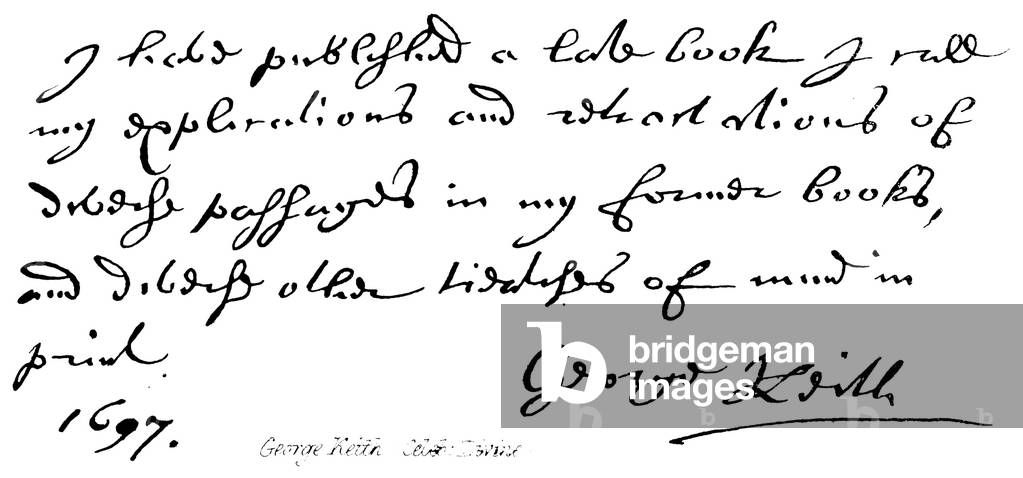 I have published a late book I call
my explications and retractations of
diverse passages in my former books,
and diverse other treatises of mine in
print.
1697.
George Keith
George Keith Celebr: Divine
bridgeman
images
b
b b b b